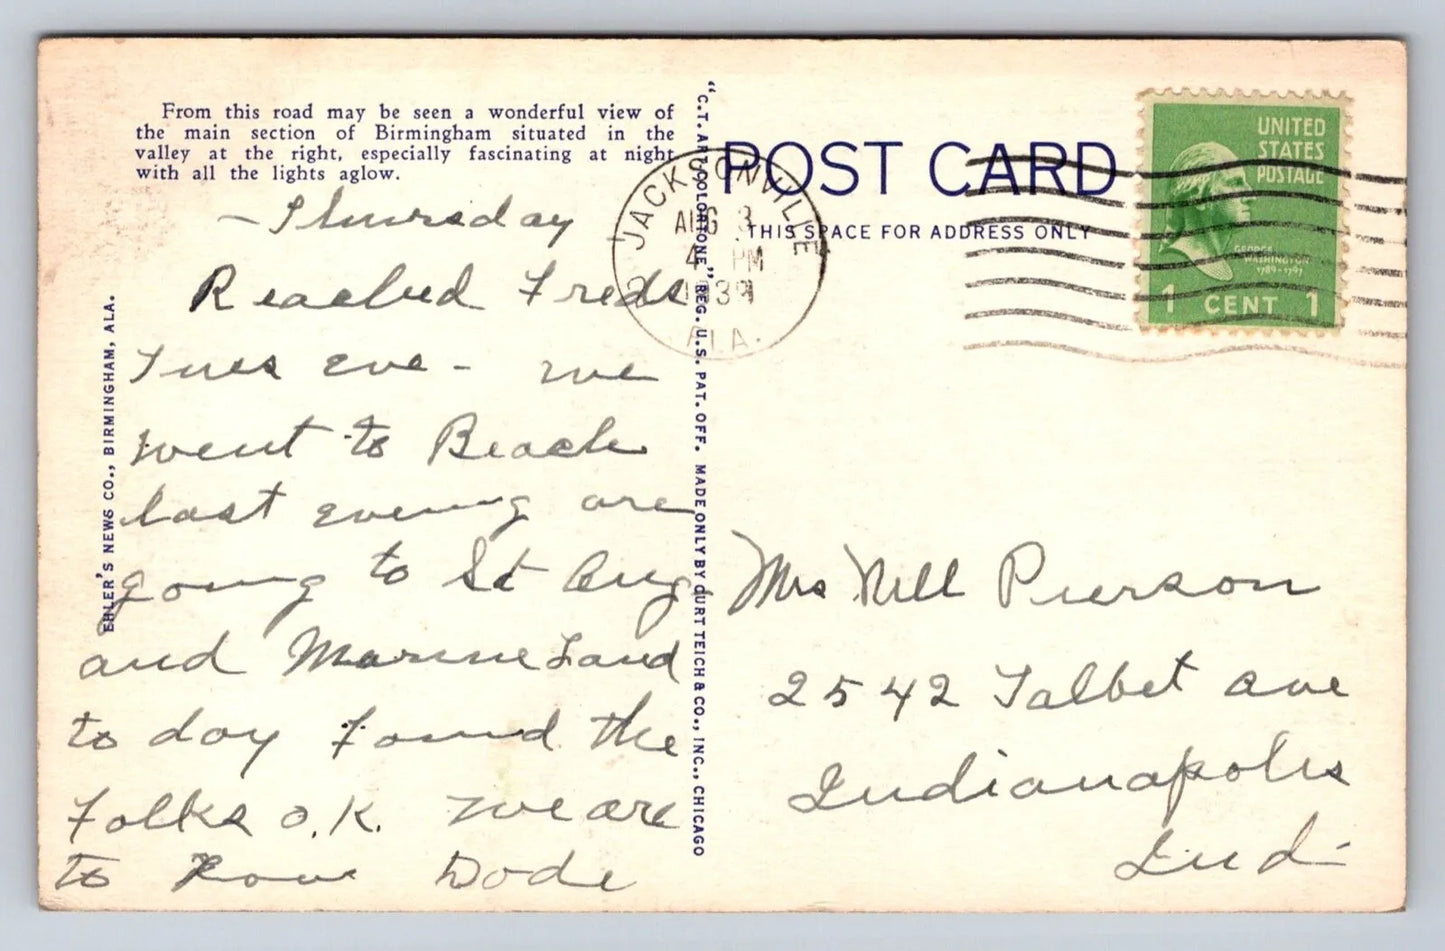 From this road may be seen a wonderful view of
the main section of Birmingham situated in the
valley at the right, especially fascinating at night
with all the lights aglow.
- Thursday
Reached Freds
Tues eve - we
went to Beach
last evening are
going to St Aug
and Marine Land
to day found the
folks o.k. we are
to Dode
EHLER'S NEWS CO., BIRMINGHAM, ALA.
"C.T. ART-COLORTONE" REG. U.S. PAT. OFF. MADE ONLY BY CURT TEICH & CO., INC., CHICAGO
POST CARD
THIS SPACE FOR ADDRESS ONLY
JACKSONVILLE
AUG 3
4 PM
1939
ALA.
UNITED
STATES
POSTAGE
GEORGE
WASHINGTON
1789-1797
1 CENT 1
Mrs Nell Pierson
2542 Talbet ave
Indianapolis
Ind-